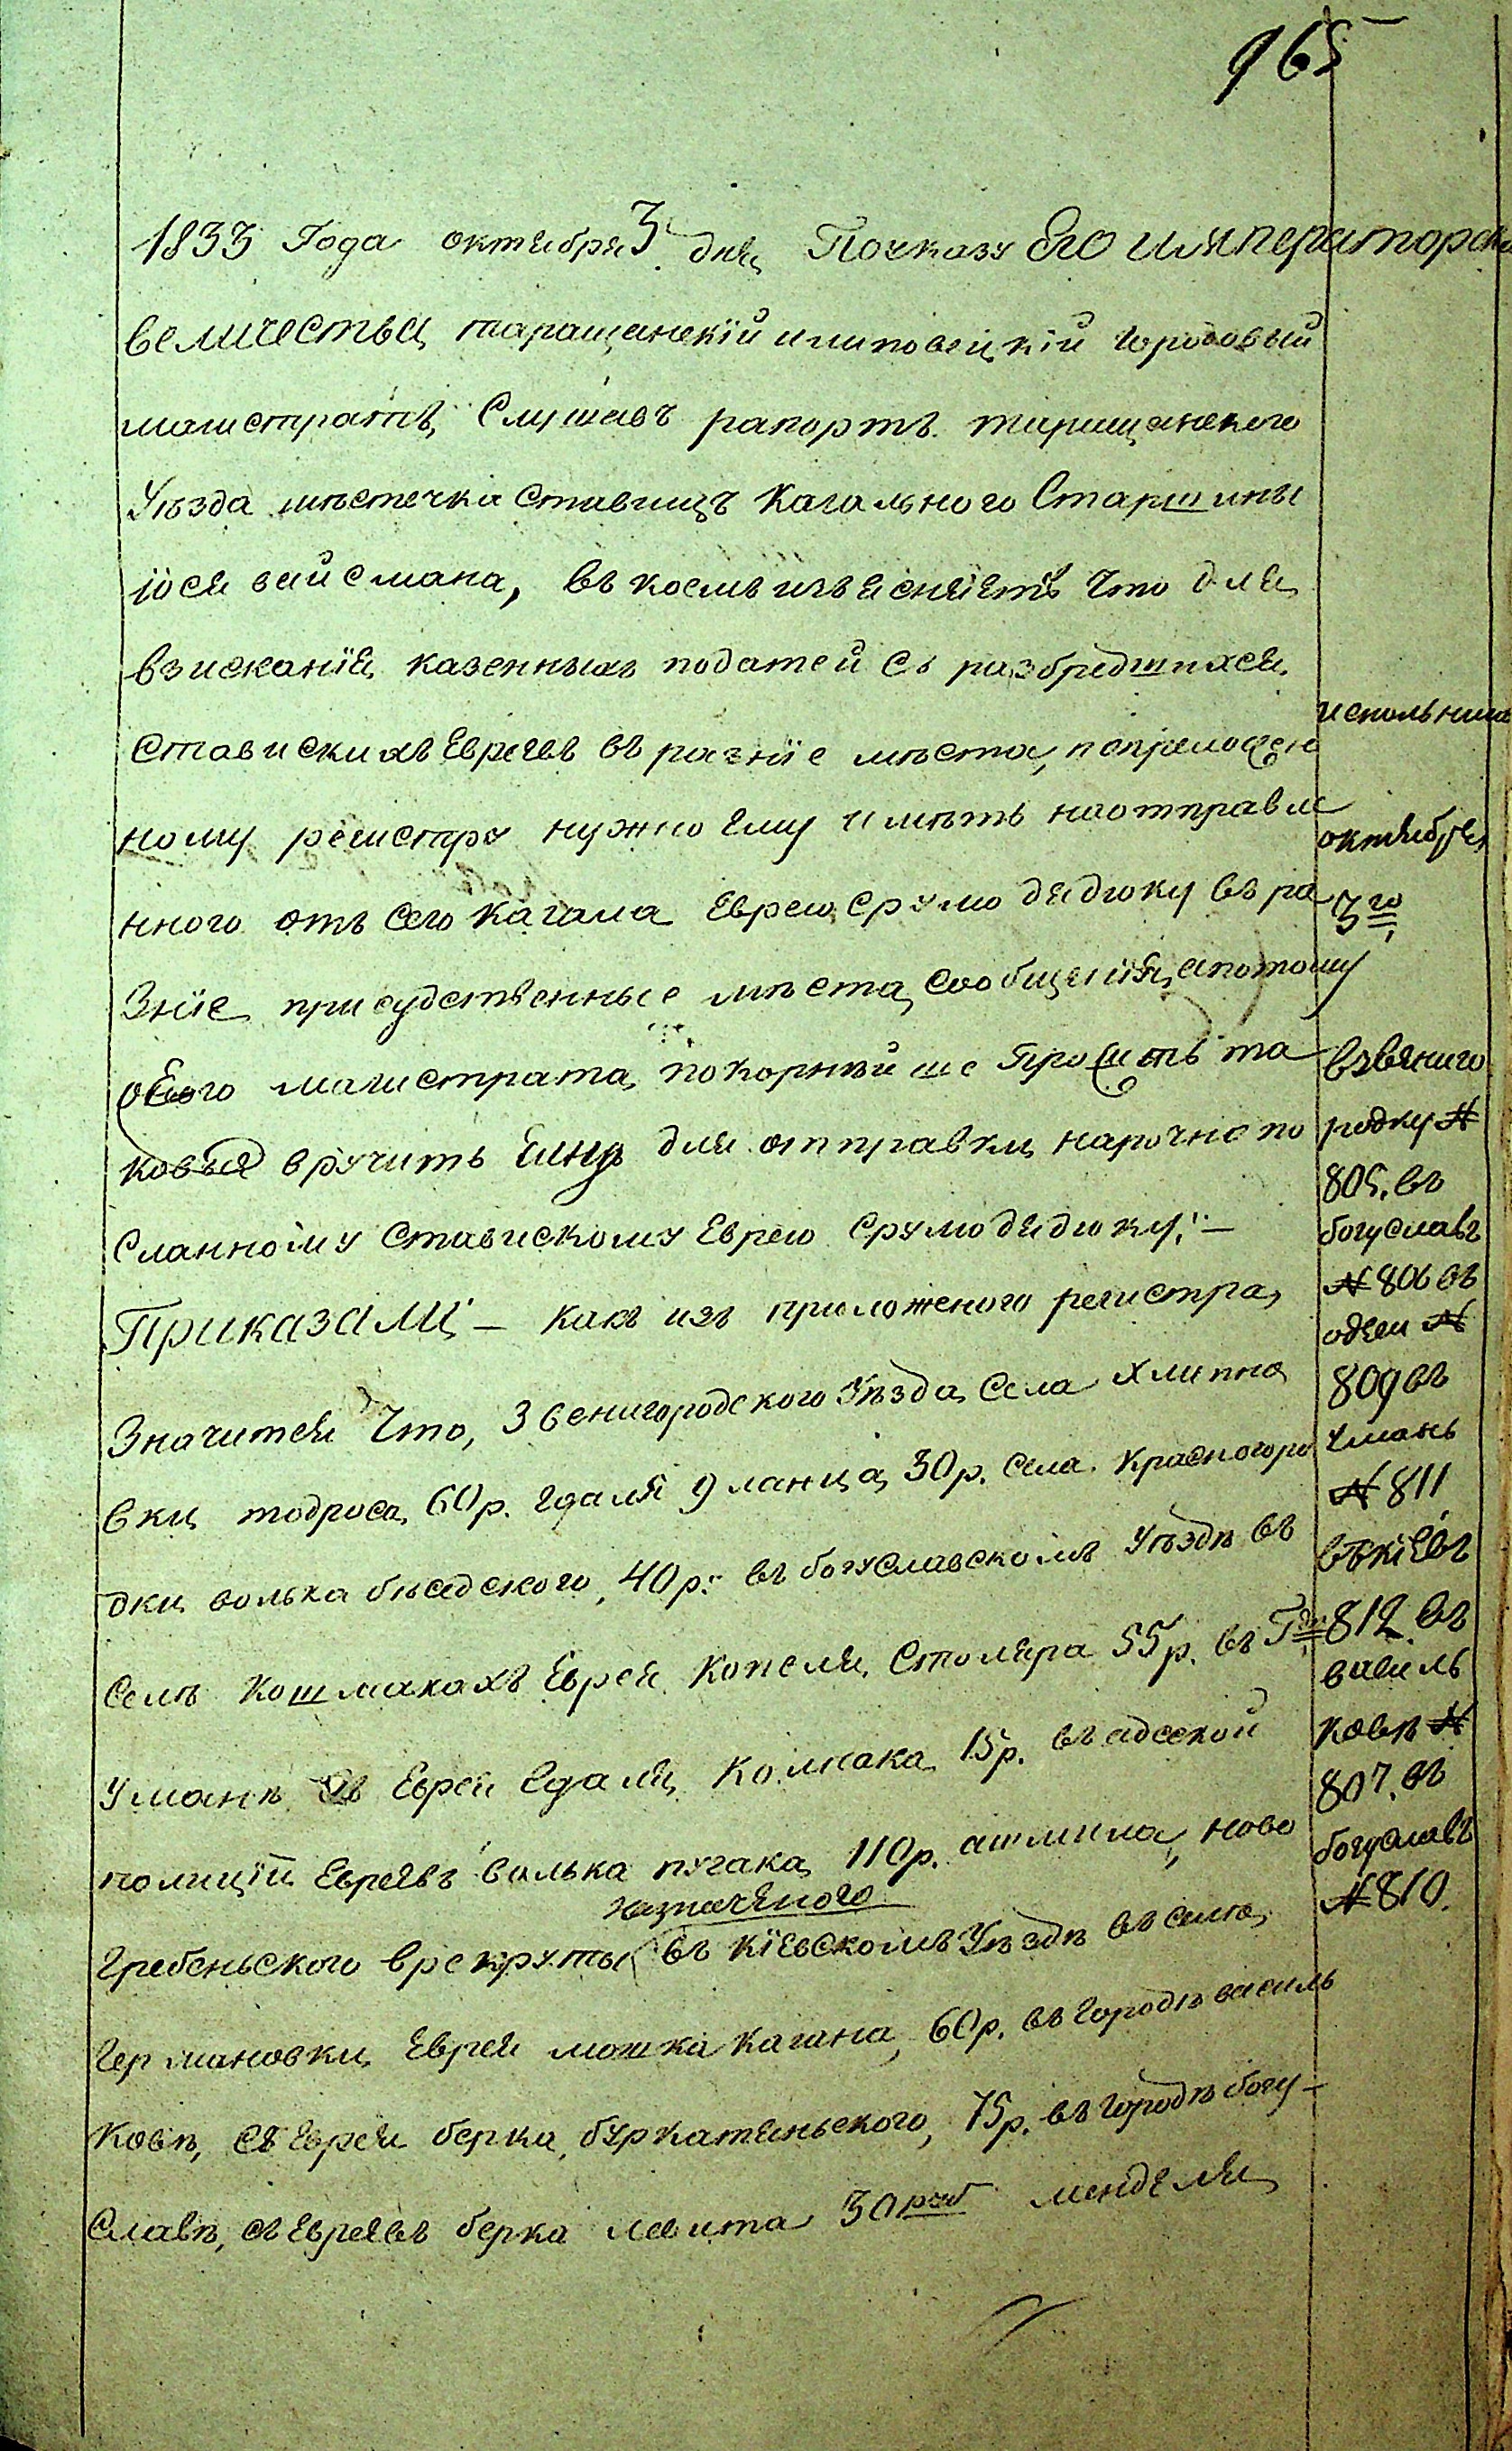 965
1833 Года октября 3 дня Поуказу Его императорск
величества таращанскїй илиповецкїй городовый
магистратъ, Слушавъ рапортъ таращанского
Уѣзда мѣстечка Ставищъ Кагального Старшины
іося вайсмана, въ коемъ изъясняетъ что для
взисканїя казенныхъ податей съ разбредшихся
ставискихъ Евреевъ въ разнїе мѣста, поприложен
ному регистру нужно Ему имѣть наотправле
нного отъ сего Кагала Еврею Срулю дядюку въ ра
Знїе присудственные мѣста сообщенїя, апотому
оного магистрата покорнѣйше проситъ та
ковыя вручить Ему для отправки нарочно по
сланному ставискому Еврею Срулю дядюку: —
Приказали — какъ изъ приложеного регистра,
Значится Что, Звенигородского Уѣзда Села Хлипно
вки тодроса 60р. гдаля гланца 30р. села Красногоро
дки волька бѣседского, 40р: въ богуславскомъ Уѣздѣ въ
селѣ Кошмакахъ Еврея Копеля Столяра 55р. въ Гдѣ
Уманѣ Еврея Гдаля Колпака 15р. въ адеской
полицїи Евреевъ волька пугака 110р. ашмила, ново
назначеного
Гребеньского врекруты въ Кїевскомъ Уѣздѣ въ селѣ
Германовки Еврея мошка Кагана, 60р. въ городѣ василь
ковѣ, съ Еврея берка буркатеньского, 75р. въ городѣ богу-
Славѣ, съ Евреевъ берка левита 30руб менделя
октября
3го
взвяниго
родку №
805. въ
богуславъ
№ 806 въ
одеси №
809 въ
Умань
№ 811
въ кїевъ
812 въ
василь
ковѣ №
807. въ
богуславъ
№ 810.